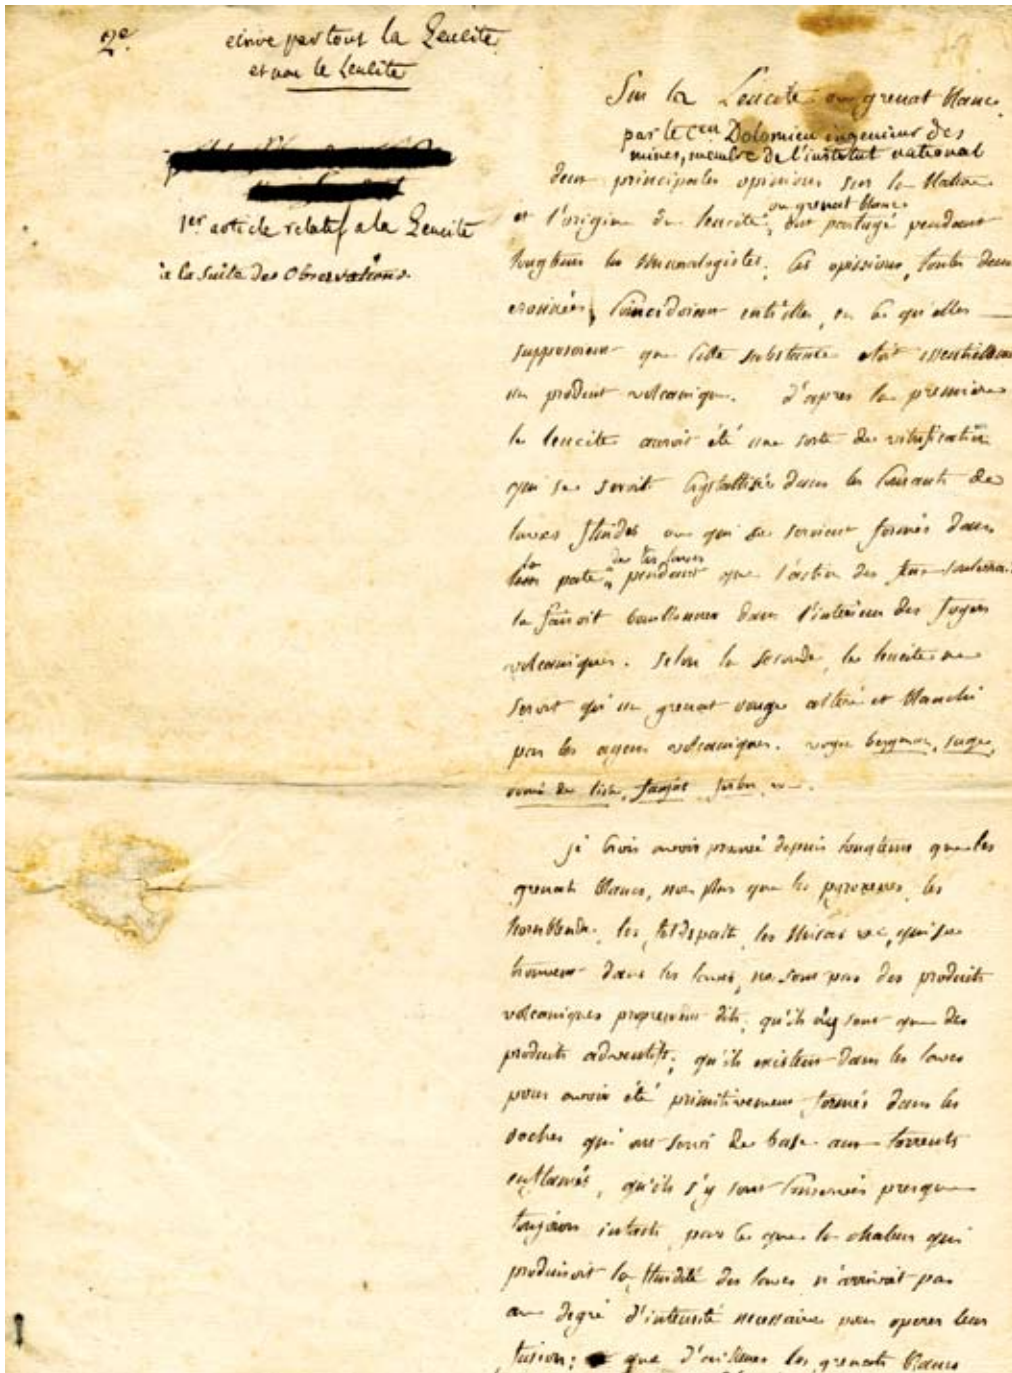 2e.
ecrire partout la Leucite
et non le Leucite
1er article relatif a la Leucite
a la suite des Observations.
Sur la Leucite ou grenat blanc.
par le Cen Dolomieu ingenieur des
mines, membre de l'institut national
deux principales opinions sur la Nature
ou grenat blanc
et l'origine du leucite, ont partagé pendant
longtems les Mineralogistes. Ces opinions, toutes deux
erronées, Coincidoient entr'elles, en ce qu'elles
supposoient que cette substance etoit essentiellement
un produit volcanique. d'apres la premiere
le leucite auroit été une sorte de vitrification
qui se seroit Crystallisée dans les Courants de
laves fluides ou qui se seroient formés dans
la de ces laves
pate, pendant que l'action des feux
la faisoit bouillonner dans l'interieur des foyers
volcaniques. Selon la seconde, le leucite ne
seroit qu'un grenat rouge altéré et blanchi
par les agens volcaniques. voyez bergman, sage,
romé de lisle, faujas, ferber, &c.
je Crois avoir prouvé depuis longtems que les
grenats blancs, non plus que les pyroxenes, les
hornblende, les feldspath, les Micas &c, qui se
trouvent dans les laves, ne sont pas des produits
volcaniques proprement dits, qu'ils n'y sont que des
produits adventifs; qu'ils existent dans les laves
pour avoir été primitivement formés dans les
roches qui ont servi de base aux torrents
enflamés, qu'ils s'y sont Conservés presque
toujours intacts, par ce que la chaleur qui
produisoit la fluidité des laves n'arrivoit pas
au degré d'intensité necessaire pour operer leur
fusion; que d'ailleurs les grenats blancs